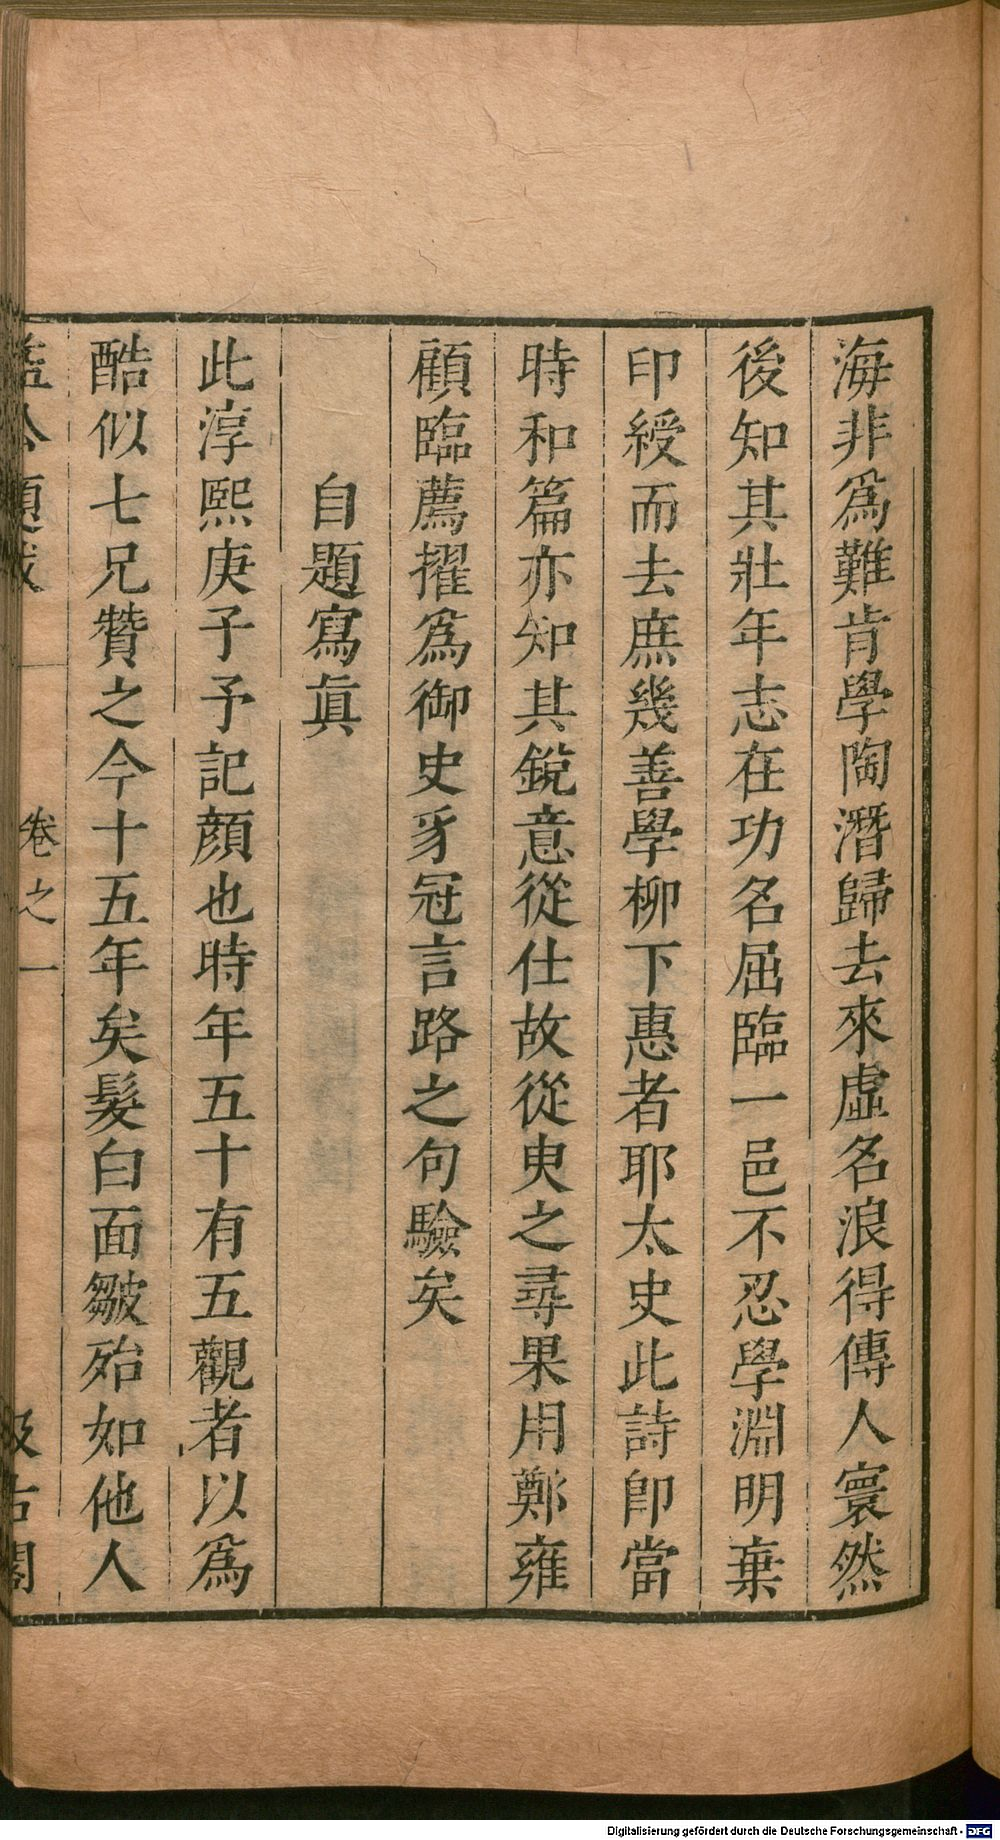 海非爲難肯學陶潛歸去來虛名浪得傳人寰然
後知其壯年志在功名屈臨一邑不忍學淵明棄
印綬而去庶幾善學柳下惠者耶太史此詩即當
時和篇亦知其銳意從仕故從臾之尋果用鄭雍
顧臨薦擢爲御史豸冠言路之句驗矣
自題寫眞
此淳熙庚子予記顔也時年五十有五觀者以爲
酷似七兄贊之今十五年矣髮白面皺殆如他人
益公題跋
卷之一
汲古閣
Digitalisierung gefördert durch die Deutsche Forschungsgemeinschaft - DFG